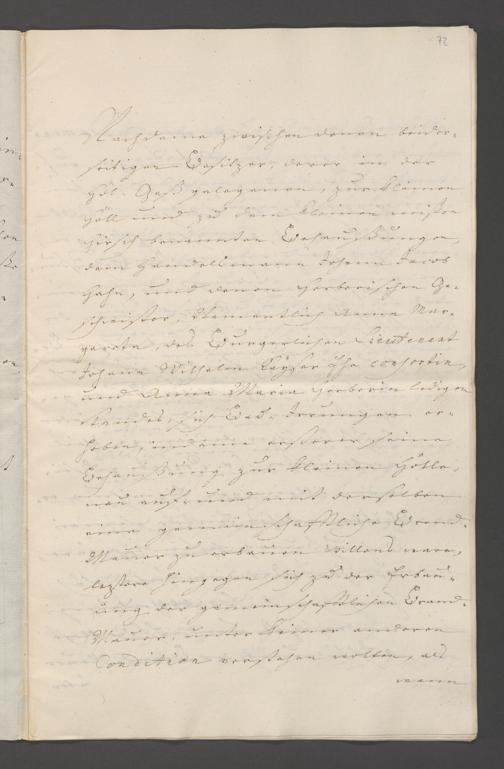 72
Nachdeme zwischen denen beider-
seitigen Besitzer, derer in der
Höl. Gaß gelegenen, zur kleinen
Höll und zu dem kleinen weisen
Hirsch benannten Behaußungen,
dem Handelsmann Johann Jacob
Hahn, und denen Herberischen Ge-
schwister, Namentlich Anna Mar-
gareta, des Burgerlichen Lieutenent
Johann Wilhelm Kayser Ehe consortin,
und Anna Maria Herberin ledigen
Standes, sich Bau-Irrungen er-
hoben, indeme ersterer seine
Behaußung zur kleinen Hölle,
neu auf- und mit derselben
eine gemeinschafftliche Brand-
Mauer zu erbauen willens ware,
leztere hingegen sich zu der Erbau-
ung der gemeinschafftlichen Brand-
Mauer, unter keiner anderen
Condition verstehen wolten, als
wann